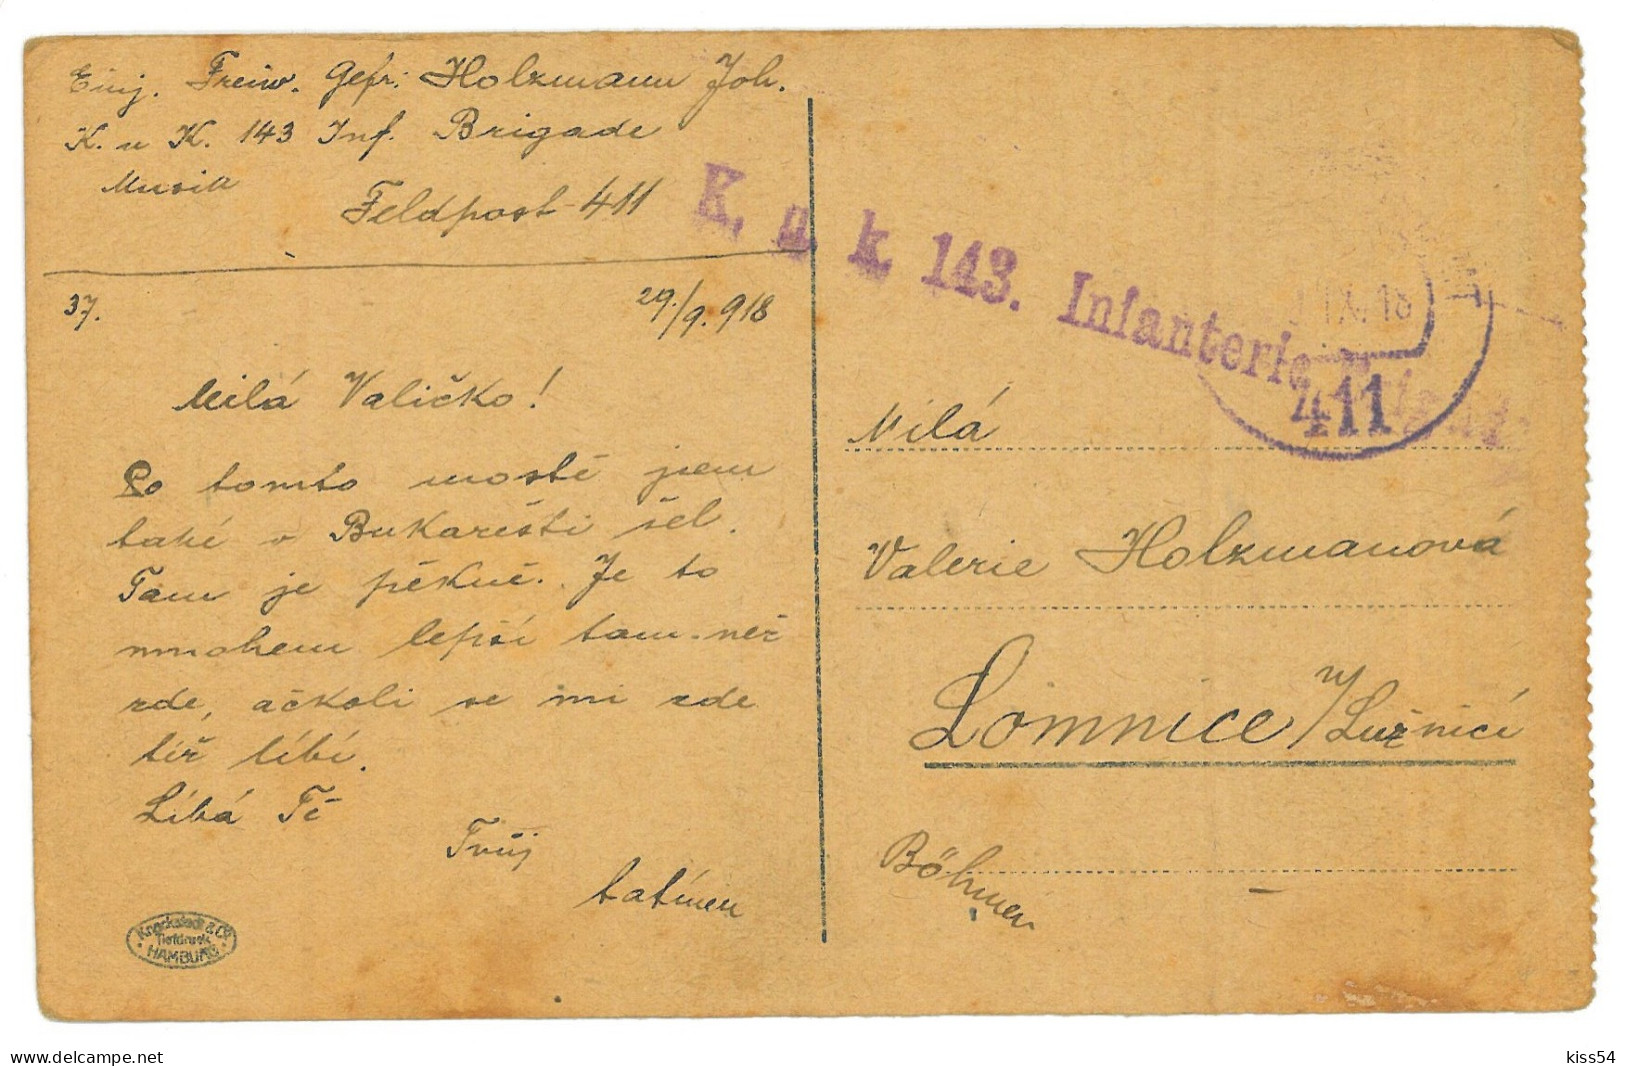 Einj. Freiw. Gefr: Holzmann Joh.
K. u K. 143 Inf. Brigade
Musik
Feldpost 411
37.
29./9. 918
Milá Valičko!
Po tomto mostě jsem
také v Bukarešti šel.
Tam je pěkně. Je to
mnohem lepší tam než
zde, ačkoli se mi zde
též líbí.
Líbá Tě
Tvůj
tatínek
Knackstedt & Co
Tiefdruck
HAMBURG
K. u. k. 143. Infanterie
IX. 18
411
Milá
Valerie Holzmanová
Lomnice n/Lužnicí
Böhmen
www.delcampe.net
kiss54